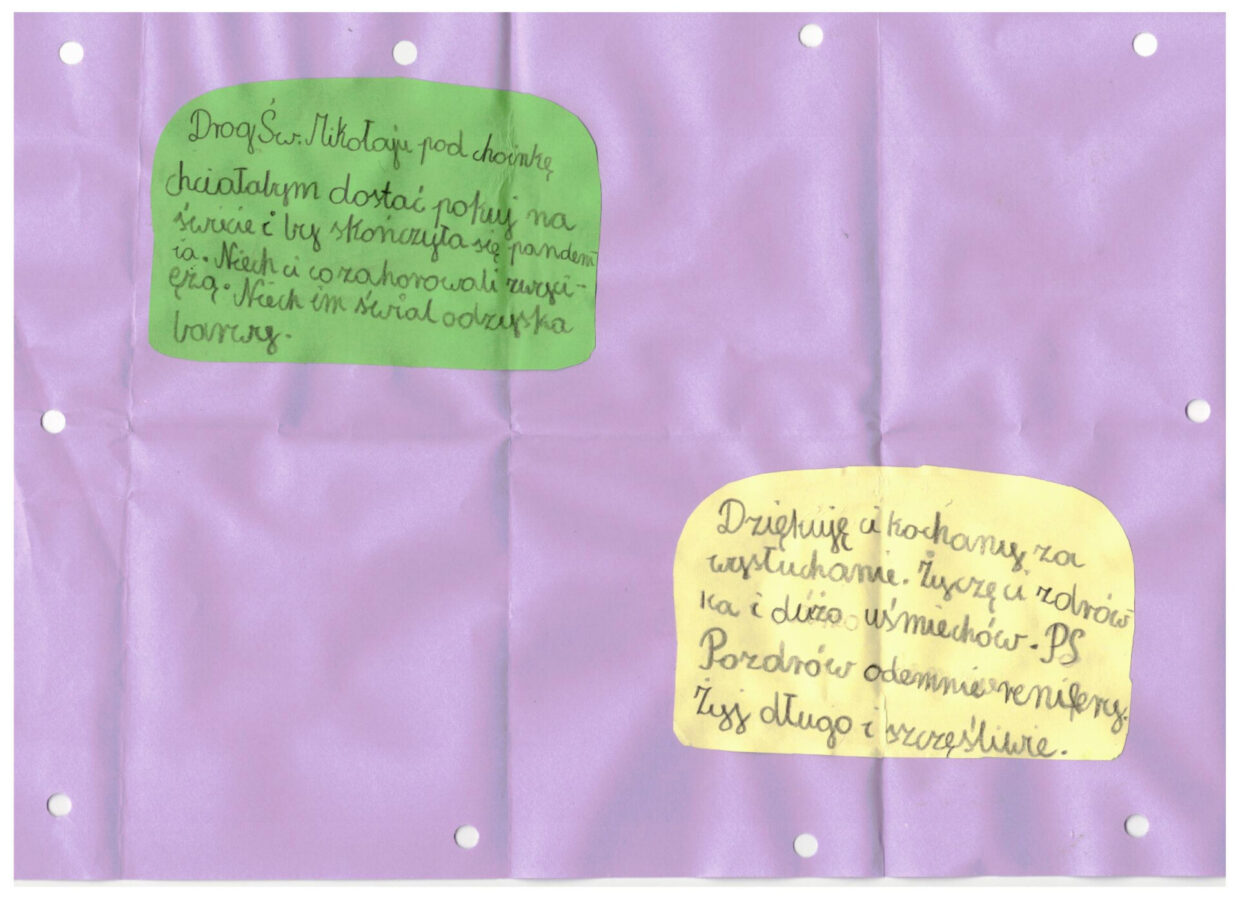 Drog Św. Mikołaju pod choinkę
chciałabym dostać pokuj na
świcie i by skończyła się pandem
ia. Niech ci co zahorowali zwyci-
ężą. Niech im świat odzyska
barwy.
Dziękuję ci kochany za
wysłuchanie. Życzę ci zdrów
ka i dużo uśmiechów. PS
Pozdrów odemnie renifery.
Żyj długo i szczęśliwie.